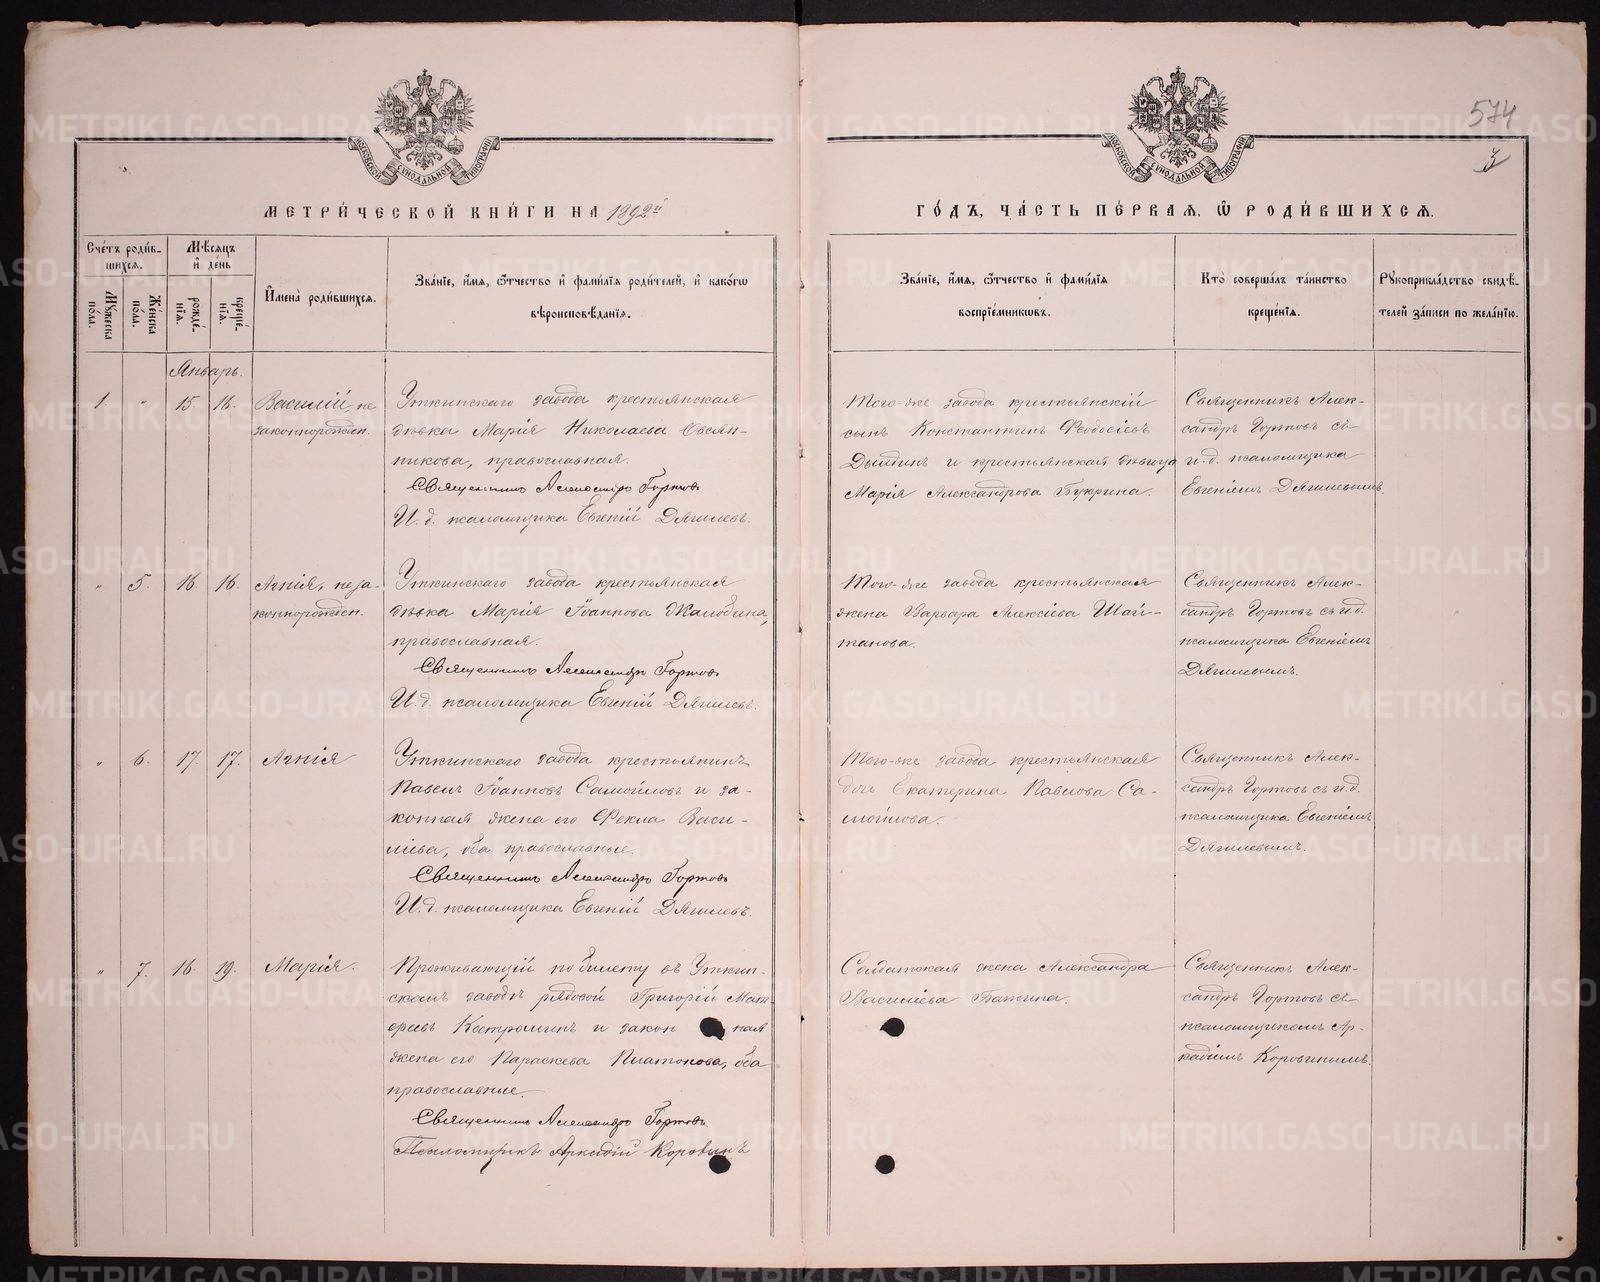 574
3
МОСКОВСКОЙ СУНОДАЛЬНОЙ ТИПОГРАФІИ
МОСКОВСКОЙ СУНОДАЛЬНОЙ ТИПОГРАФІИ
МЕТРИ́ЧЕСКОЙ КНИ́ГИ НА 1892й
ГО́ДЪ, ЧА́СТЬ ПЕ́РВАЯ, Ѿ РОДИ́ВШИХСЯ.
Сче́тъ роди́в-
шихся.
Мѣ́сяцъ
и҆ де́нь
Му́жеска по́ла.
Же́нска по́ла.
рожде́-
нїя.
креще́-
нїя.
И҆мена̀ роди́вшихся.
Зва́нїе, и҆́мя, ѻ҆́тчество и҆ фами́лїя роди́телей, и҆ како́гѡ
вѣроисповѣ́данїя.
Зва́нїе, и҆́мя, ѻ҆́тчество и҆ фами́лїя
воспрїе́мникѡвъ.
Кто̀ соверша́лъ та́инство
креще́нїя.
Рꙋкоприкла́дство свидѣ́-
телей за́писи по жела́нїю.
Январь.
1. " 15. 16. Василій, не
законнорожден.
Уткинскаго завода крестьянская
дѣвка Марія Николаева Овсян-
никова, православная.
Священникъ Александръ Гортовъ
И. д. псаломщика Евгеній Дягилевъ.
Того-же завода крестьянскій
сынъ Константинъ Ѳеодосіевъ
и крестьянская дѣвица
Марія Александрова
Священникъ Алек-
сандръ Гортовъ съ
и. д. псаломщика
Евгеніемъ Дягилевымъ.
" 5. 16. 16. Агнія, неза-
коннорожден.
Уткинскаго завода крестьянская
дѣвка Марія Іоаннова Жалобина,
православная.
Священникъ Александръ Гортовъ
И. д. псаломщика Евгеній Дягилевъ.
Того-же завода крестьянская
жена Варвара Алексіева Шай-
танова.
Священникъ Алек-
сандръ Гортовъ съ и. д.
псаломщика Евгеніемъ
Дягилевымъ.
" 6. 17. 17. Агнія
Уткинскаго завода крестьянинъ
Павелъ Іоанновъ Самойловъ и за-
конная жена его Ѳекла Васи-
ліева, оба православные.
Священникъ Александръ Гортовъ
И. д. псаломщика Евгеній Дягилевъ.
Того-же завода крестьянская
дочь Екатерина Павлова Са-
мойлова.
Священникъ Алек-
сандръ Гортовъ съ и. д.
псаломщика Евгеніемъ
Дягилевымъ.
" 7. 16. 19. Марія.
Проживающій по билету въ Уткин-
скомъ заводѣ рядовой Григорій Мат-
ѳеевъ Костроминъ и закон ная
жена его Параскева Платонова, оба
православные.
Священникъ Александръ Гортовъ
Псаломщикъ Аркадій Коровинъ
Солдатская жена Александра
Василіева Бажина.
Священникъ Алек-
сандръ Гортовъ съ
псаломщикомъ Ар-
кадіемъ Коровинымъ.
METRIKI.GASO-URAL.RU